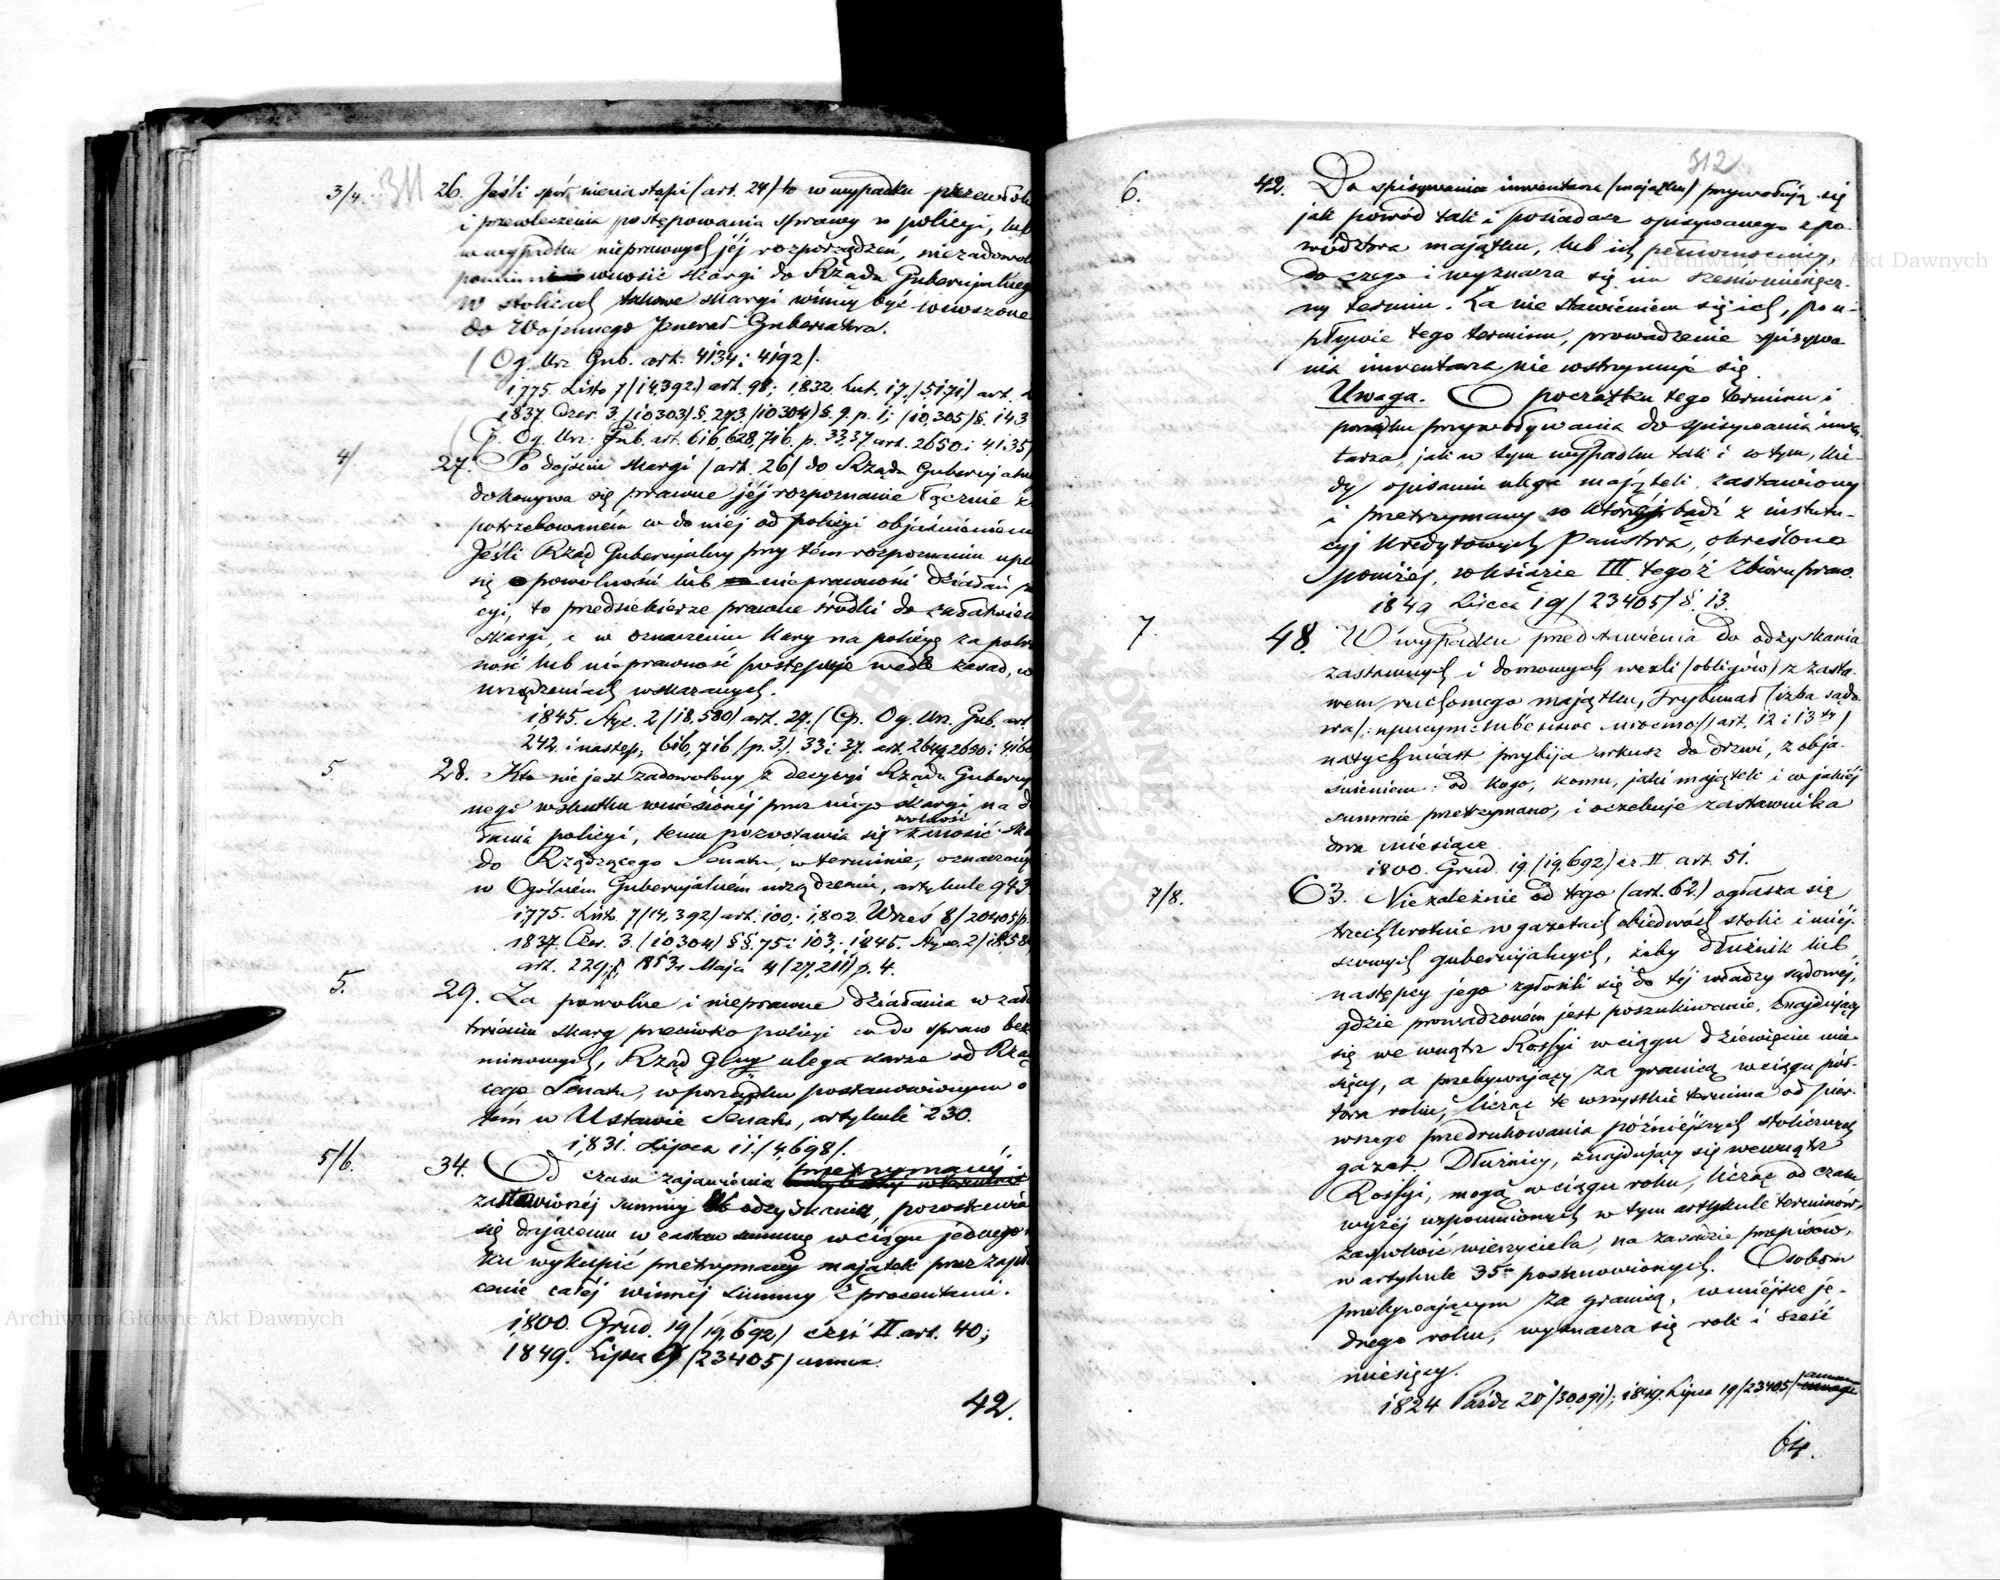 311
3/4. 26. Jeśli spór nienastąpi (art. 24) to w wypadku
i przewleczenia postępowania sprawy w policyi, lub
w wypadku nieprawnych jéj rozporządzeń,
wnosić skargi do Rządu Gubernijalnego
W stolicach takowe skargi winny być wnoszone
do Wojennego Jenerał-Gubernatora.
(Og. Urz. Gub. art. 4134 i 4192).
1775. Listo 7 (14,392) art. 98; 1832. Lut. 17. (5171) art.
1837. Czer. 3. (10303) §. 273 (10304) §. 9. p. 1; (10,305) §. 143
(Cp. Og. Urz. Gub. art. 616, 628, 716. p. 33, 37 art. 2650 i 4135)
4/. 27. Po dojściu skargi (art. 26) do Rządu Gubernijalne
dokonywa się prawne jéj rozpoznanie łącznie z
potrzebowaném co do niej od policyi objaśnieniem
Jeśli Rząd Gubernijalny przy tém rozpoznaniu upe
się o powolności lub nieprawności działań
cyi, to przedsiebierze prawne środki do załatwien
skargi, a w oznaczeniu kary na policyę za powol
ność lub nieprawność postępuje wedle zasad, w
urządzeniach wskazanych.
1845. Styc. 2 (18,580) art. 29. (Cp. Og. Urz. Gub. art
242. i następ; 616, 716. (p. 3). 33 i 37. art. 2649, 2650 i
5. 28. Kto nie jest zadowolony z decyzyi Rządu Guberny
nego wskutku wniesionéj przez niego skargi na
łania policyi, temu pozostawia się wolność wnosić
do Rządzącego Senatu, w terminie, oznaczony
w Ogólném Gubernijalném urządzeniu, artykule 943
1775. Listo. 7 (14,392) art. 100; 1802. Wrześ 8 (20405) p.
1837. Czer. 3. (10304) §§. 75 i 103; 1845. Styc. 2 (18,58
art. 229; 1853 Maja 4 (27,211) p. 4.
5. 29. Za powolne i nieprawne działania w zała
twieniu skarg przeciwko policyi co do spraw bez
Rząd Gbny ulega karze od Rzą
cego Senatu, w porządku postanowionym o
tém w Ustawie Senatu, artykule 230.
1831. Lipca 11. (4,698).
5/6. 34. Od czasu zajawienia
zastawionéj summy do odzyskania, pozostawia
się dającemu w zastaw summę w ciągu jednego
wykupić przetrzymany majątek przez zapł
cenie całéj winnéj summy z procentami.
1800. Grud. 19 (19,692) część II. art. 40;
1849. Lipca 19 (23405)
42.
312
6. 42. Do spisywania inwentarza (majątku) przywołują się
jak powód tak i posiadacz opisywanego z po-
wództwa majątku, lub ich pełnomocnicy,
do czego i wyznacza się im sześciomiesięcz-
ny termin. Za nie stawieniem się ich, po u-
pływie tego terminu, prowadzenie spisywa
nia inwentarza nie wstrzymuje się.
Uwaga. O początku tego terminu i
porządku przywoływania do spisywania inwen
tarza, jak w tym wypadku tak i w tym, kie-
dy opisaniu ulega majątek, zastawiony
i przetrzymany w któréj bądź z instytu-
cyj kredytowych Państwa, określono
poniżéj, w księdze III tegoż Zbioru praw.
1849 Lipca 19 (23405) §. 13.
7. 48. W wypadku przedstawienia do odzyskania
zastawnych i domowych wexli (obligów) z zasta-
wem ruchomego majątku, Trybunał (izba sądo
wa) art. 12 i 13
natychmiast przybija arkusz do drzwi, z obja-
śnieniem: od kogo, komu, jaki majątek i w jakiéj
summie przetrzymano, i oczekuje zastawnika
dwa miesiące.
1800. Grud. 19 (19,692) cz. II. art. 51.
7/8. 63. Niezależnie od tego (art. 62.) ogłasza się
trzechkrotnie w gazetach obiedwóch stolic i miéj-
scowych gubernijalnych, żeby dłużnik lub
następcy jego zgłosili się do téj władzy sądowéj,
gdzie prowadzoném jest poszukiwanie, znajdujący
się we wnątrz Rossyi w ciągu dziewięciu mie-
sięcy, a przebywający za granicą w ciągu pół-
tora roku, licząc te wszystkie termina od pier-
wszego przedrukowania późniejszych stołecznych
gazet. Dłużnicy, znajdujący się wewnątrz
Rossyi, mogą w ciągu roku, licząc od czasu
wyżéj wspomnionych w tym artykule terminów,
zaspokoić wierzyciela, na zasadzie przepisów,
w artykule 35m postanowionych. Osobom
przebywającym za granicą, w miejsce je-
dnego roku, wyznacza się rok i sześć
miesięcy.
1824 Paźdz 20 (30,091); 1849. Lipca 19 (23405)
64.